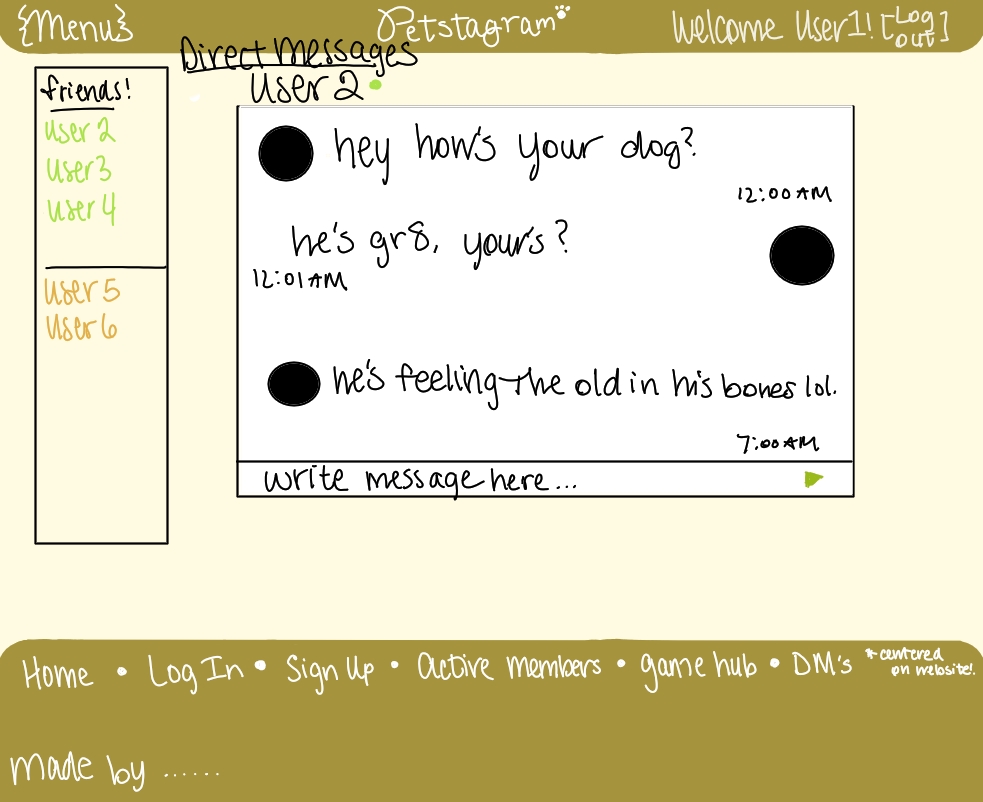 {Menu}
Petstagram
Welcome User1! [Log out]
Direct Messages
User 2
friends!
user 2
user3
user 4
user 5
user 6
hey how's your dog?
12:00 AM
he's gr8, your's?
12:01 AM
he's feeling the old in his bones lol.
7:00 AM
write message here...
Home • Log In • Sign Up • active members • game hub • DM's
*centered
on website!
made by ......